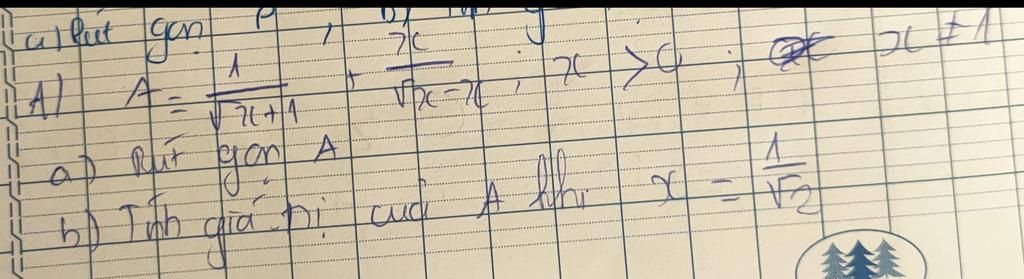 a) Rút gọn P, b)
A) A = \frac{1}{\sqrt{x}+1} + \frac{x}{\sqrt{x}-x}; x > 0; x ≠ 1
a) Rút gọn A
b) Tính giá trị của A khi x = \frac{1}{\sqrt{2}}